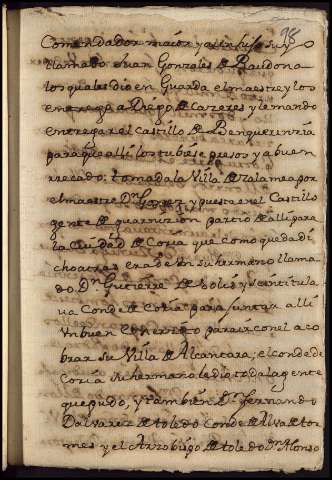 98
Comendador maior y a un hijo suyo
llamado Juan Gonzales de Raudona
los quales dio en Guarda el maestre y los
entregó a Diego de Cazeres y le mandó
entregar el Castillo de Benquerenzia
para que alli los tubiese presos y a buen
recado; tomada la Villa de Zalamea por
el maestre Dn Gomez y puesto en el Castillo
gente de guarnizion partio de alli para
la Ciudad de Coria que como queda di
cho atras era de un su hermano llama
do Dn Gutierre de Solis y se intitula
va Conde de Coria para juntar alli
un buen Exerzito para ir con el a co
brar su Villa de Alcantara; el conde de
Coria su hermano le dio toda la gente
que pudo, y tambien Dn Fernando
Dalvarez de toledo Conde de Alva de tor
mes y el Arzobispo de toledo Dn Alonso